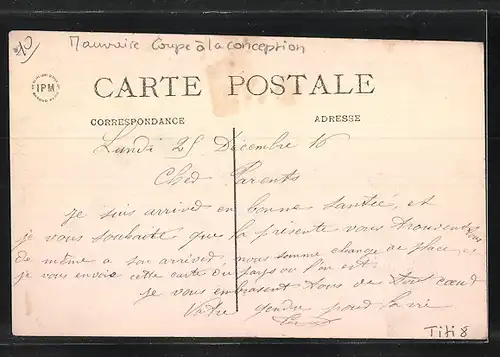 Mauvaise Coupe à la conception
IPM
CARTE POSTALE
CORRESPONDANCE
ADRESSE
Lundi 25 Décembre 16
Cher Parents
je suis arrived en bonne santée, et
je vous souhaite que la présente vous trouvent
de même a son arrived, nous somme change de place, et
je vous envoie cette carte du pays ou l'on est.
je vous embrasent tous de tout cœur
Votre gendre pour la vie
Titi 8